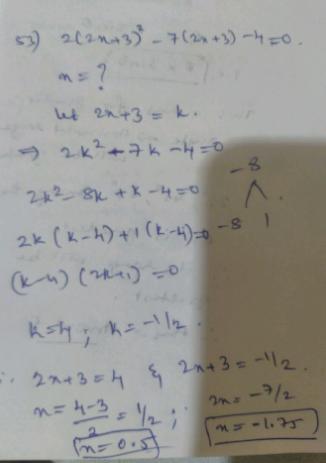 53) 2(2x+3)² - 7(2x+3) - 4 = 0.
x = ?
let 2x+3 = k.
⇒ 2k² - 7k - 4 = 0
-8
2k² - 8k + k - 4 = 0
-8 1
2k (k-4) + 1 (k-4) = 0
(k-4) (2k+1) = 0
k=4, k = -1/2.
∴ 2x+3 = 4 & 2x+3 = -1/2.
x = 4-3/2 = 1/2 ; 2x = -7/2
x = 0.5 x = -1.75